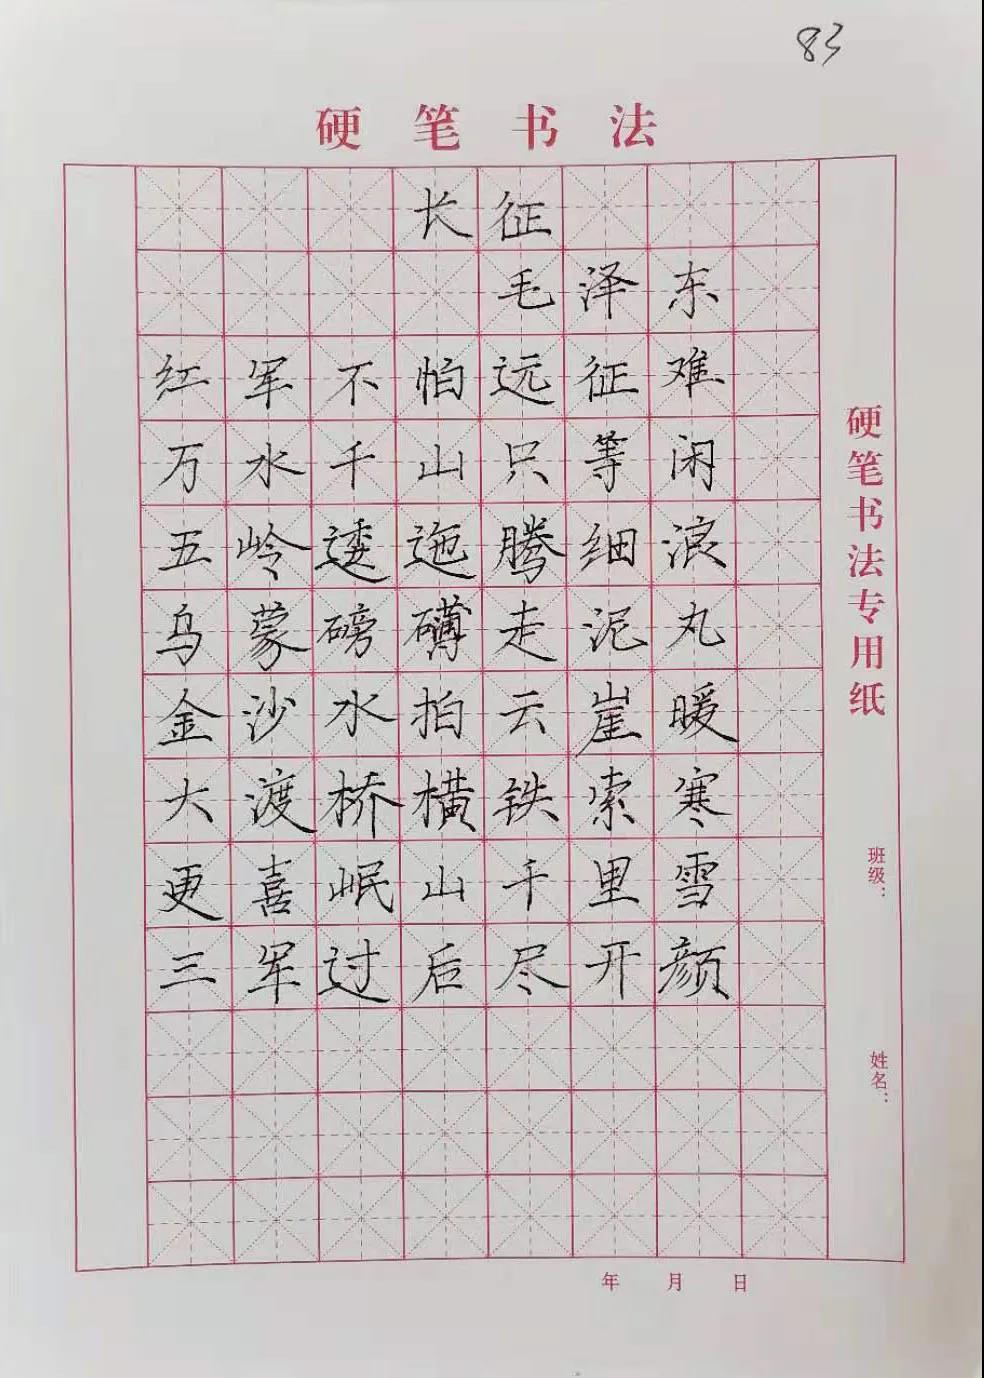 83
硬笔书法
长征
毛泽东
红军不怕远征难
万水千山只等闲
五岭逶迤腾细浪
乌蒙磅礴走泥丸
金沙水拍云崖暖
大渡桥横铁索寒
更喜岷山千里雪
三军过后尽开颜
硬笔书法专用纸
班级：
姓名：
年 月 日